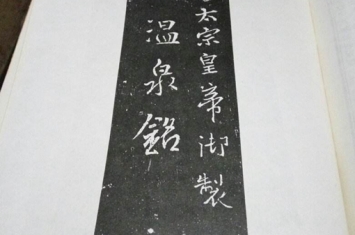 太宗皇帝御製
温泉銘